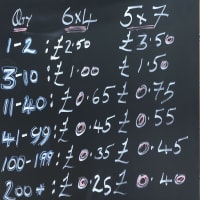 Qty 6x4 5x7
1-2 : £2.50 £3.50
3-10 : £1.00 £1.50
11-40 : £0.65 £0.75
41-99 : £0.45 £0.55
100-199 : £0.35 £0.45
200+ : £0.25 £0.40